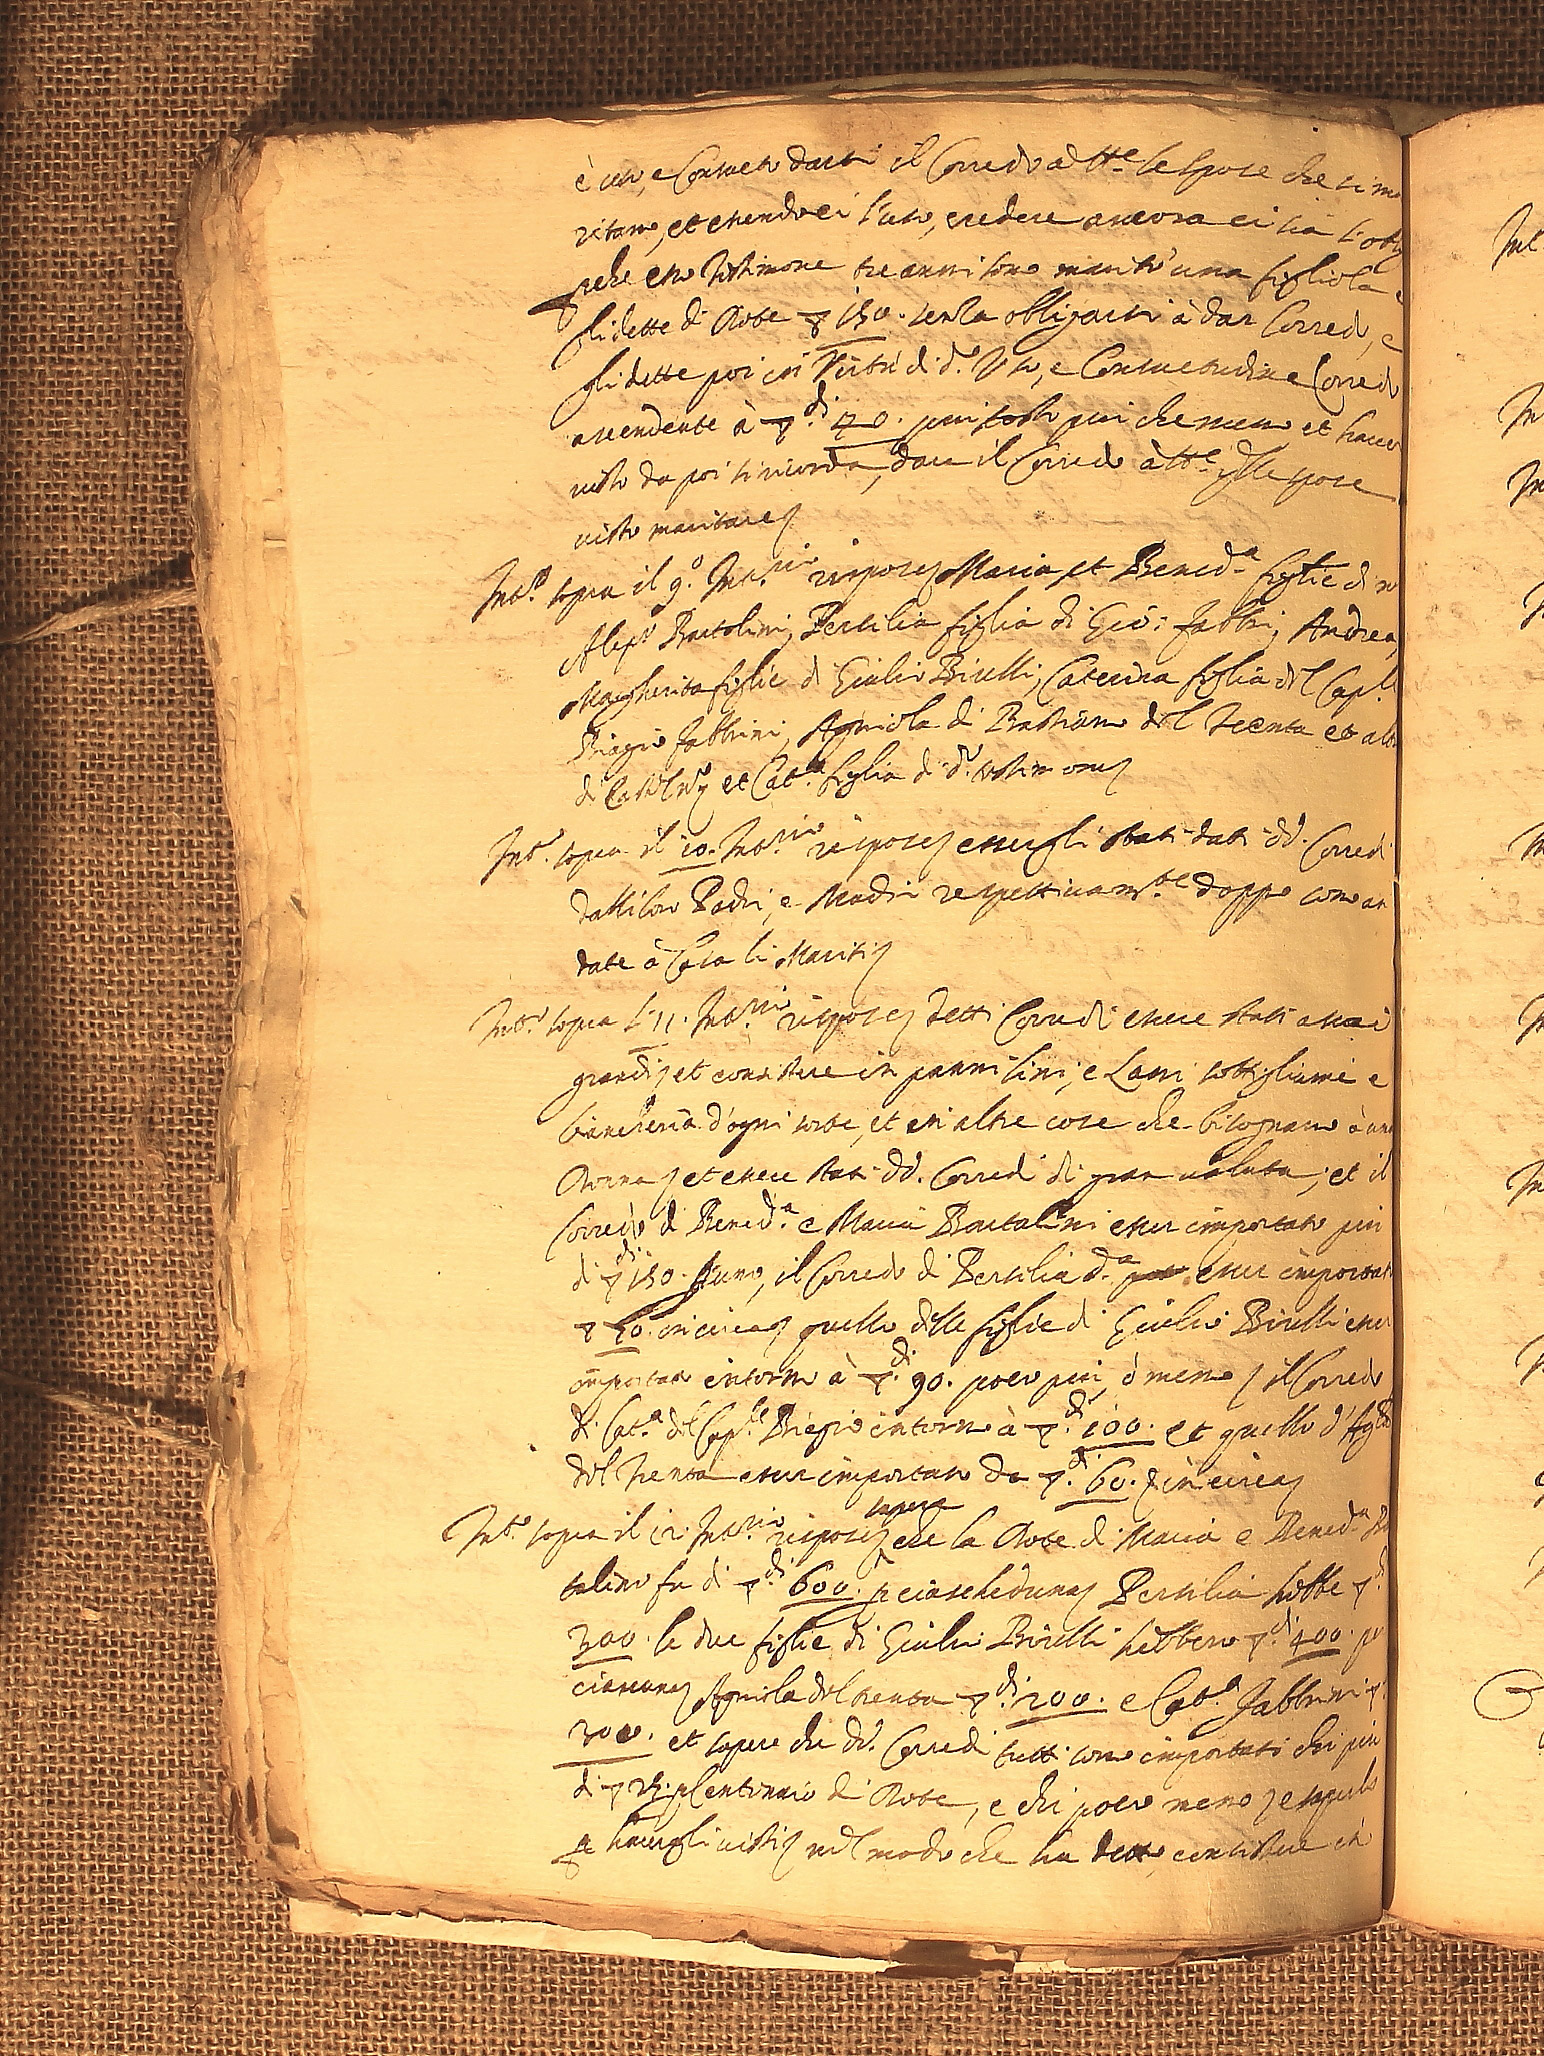 è uso, e Consueto darsi il Corredo a tt.e le spose che si ma
ritano, et essendoci l'uso, credere ancora ci sia l'obb
perche esso testimone tre anni sono maritò una figliola e
gli dette di Dote 150. senza obligarsi à dar Corredo, e
gli dette poi in Virtù di d.o Uso, e Consuetudine Corredo
ascendente à di 70. più tosto più che meno et haver
visto da poi si ricorda, dare il Corredo à tt.e q.lle spose
visto maritare
Int.o sopra il 9.o Int.rio rispose Maria et Bened.a figlie di
Aless.o Bartolini, Persilia figlia di Gio: fabbri, Andrea,
Margherita figlie di Giulio Birelli, Caterina figlia del Cap.
Biagio fabbrini, Agniola di Bastiano del Trenta et altre
di et Cat.a figlia di d.o testimone
Int.o sopra il 10. Int.rio rispose essergli stati dati dd. Corredi
dalli loro Padri, e Madri respettivam.te doppo sono an
date à Casa li Mariti
Int.o sopra l'11. Int.rio rispose detti Corredi essere stati assai
grandi, et consistere in panni lini, e Lani sottigliumi e
biancheria d'ogni sorte, et in altre cose che bisognano à una
Donna, et essere stati dd. Corredi di gran valuta, et il
Corredo di Bened.a e Maria Bartolini esser importato più
di di 150. l'uno, il Corredo di Persilia d.a esser importato
50. in circa, quello delle figlie di Giulio Birelli esser
importato intorno à di 90. poco più, ò meno, il Corredo
di Cat.a del Cap. Biagio intorno à di 100. et quello d'Ag
del Trenta esser importato da di 60. in circa
Int.o sopra il 12. Int.rio rispose sapere che la Dote di Maria e Bened.a Bar
tolini fu di di 600. p ciascheduna, Persilia hebbe di
300. le due figlie di Giulio Birelli hebbero di 400. per
ciascuna, Agniola del trenta di 200. e Cat.a Fabbrini
300. et sapere che dd. Corredi tutti sono importati chi più
di 25. p Centinaio di Dote, e chi poco meno, e saperlo
p havergli visti, nel modo che ha detto, consistere in